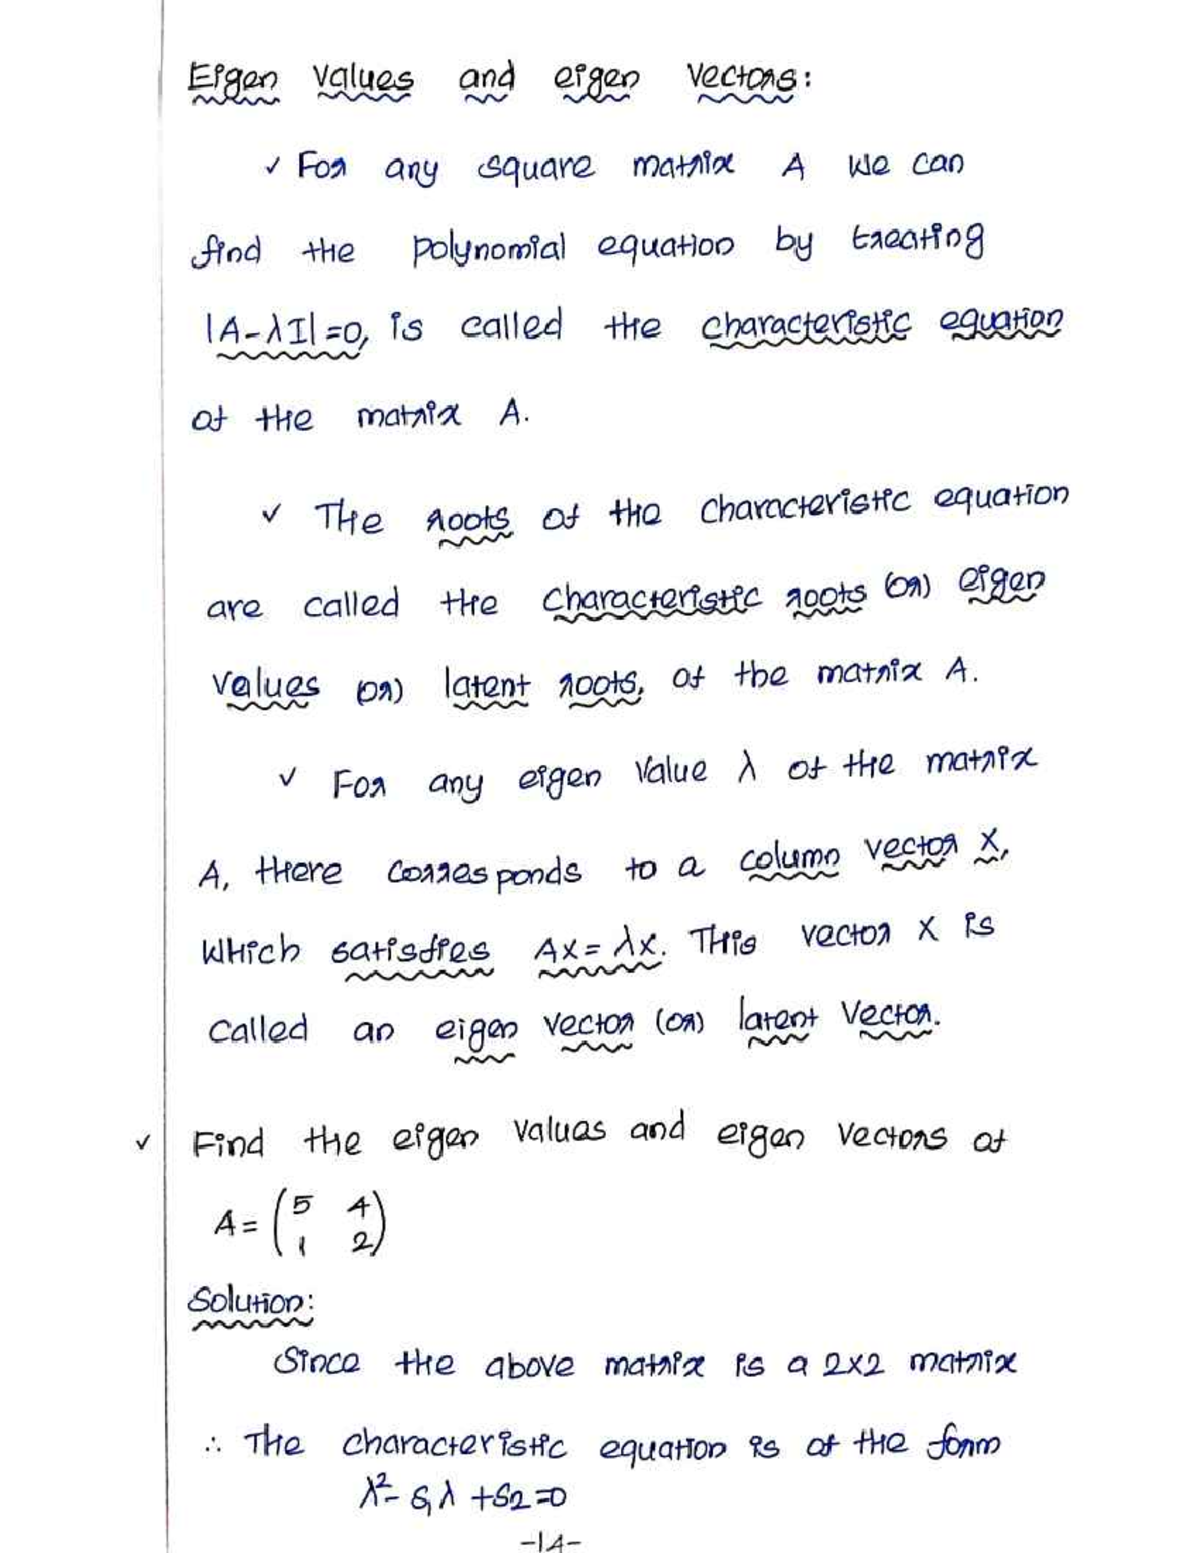 Eigen values and eigen vectors:
✓ For any square matrix A we can
find the polynomial equation by treating
|A-λI|=0, is called the characteristic equation
of the matrix A.
✓ The roots of the characteristic equation
are called the characteristic roots (or) eigen
values (or) latent roots, of the matrix A.
✓ For any eigen value λ of the matrix
A, there corresponds to a column vector X,
which satisfies AX=λX. This vector X is
called an eigen vector (or) latent vector.
✓ Find the eigen values and eigen vectors of
A = (5 4
1 2)
Solution:
Since the above matrix is a 2x2 matrix
∴ The characteristic equation is of the form
λ²-S₁λ+S₂=0
-14-